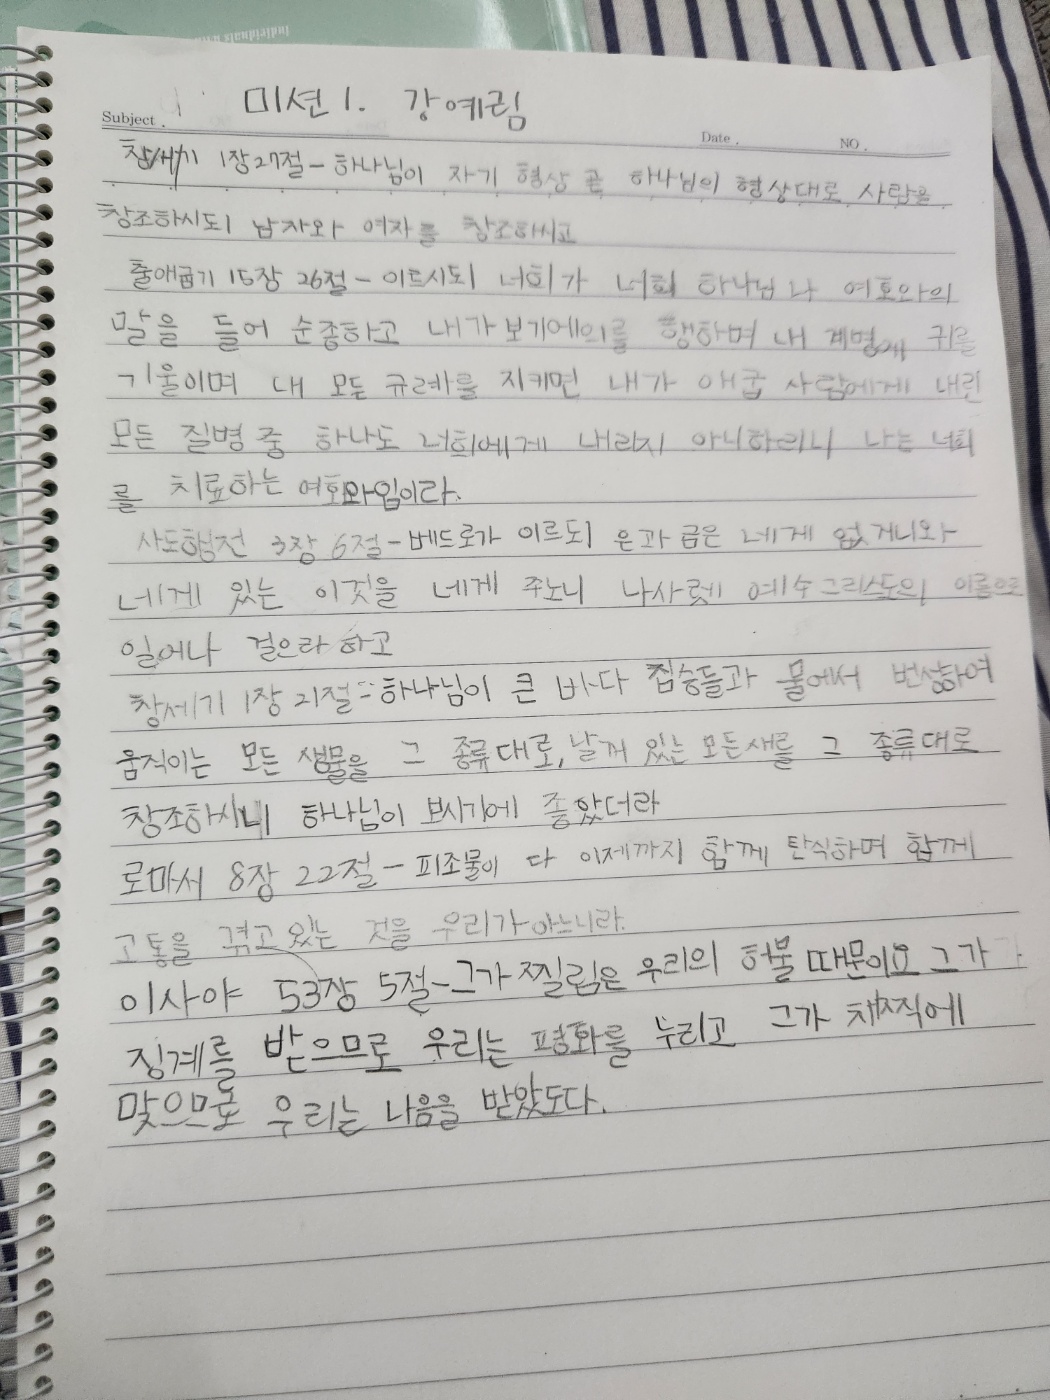 Individuals with
미션 1. 강예림
Subject .
Date .
NO .
창세기 1장 27절 - 하나님이 자기 형상 곧 하나님의 형상대로 사람을
창조하시되 남자와 여자를 창조하시고
출애굽기 15장 26절 - 이르시되 너희가 너희 하나님 나 여호와의
말을 들어 순종하고 내가 보기에 의를 행하며 내 계명에 귀를
기울이며 내 모든 규례를 지키면 내가 애굽 사람에게 내린
모든 질병 중 하나도 너희에게 내리지 아니하리니 나는 너희
를 치료하는 여호와임이라.
사도행전 3장 6절 - 베드로가 이르되 은과 금은 네게 없거니와
네게 있는 이것을 네게 주노니 나사렛 예수 그리스도의 이름으로
일어나 걸으라 하고
창세기 1장 21절 - 하나님이 큰 바다 짐승들과 물에서 번성하여
움직이는 모든 생물을 그 종류대로, 날개 있는 모든 새를 그 종류대로
창조하시니 하나님이 보시기에 좋았더라
로마서 8장 22절 - 피조물이 다 이제까지 함께 탄식하며 함께
고통을 겪고 있는 것을 우리가 아느니라.
이사야 53장 5절 - 그가 찔림은 우리의 허물 때문이요 그가
징계를 받으므로 우리는 평화를 누리고 그가 채찍에
맞으므로 우리는 나음을 받았도다.